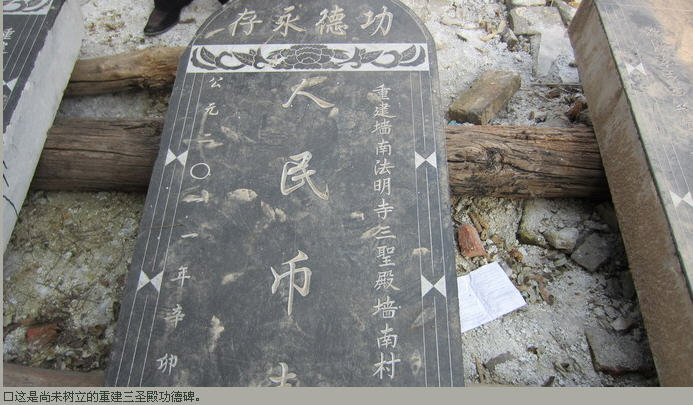 功德永存
重建墙南法明寺三聖殿墙南村
人民币
公元二〇一一年辛卯
□这是尚未树立的重建三圣殿功德碑。